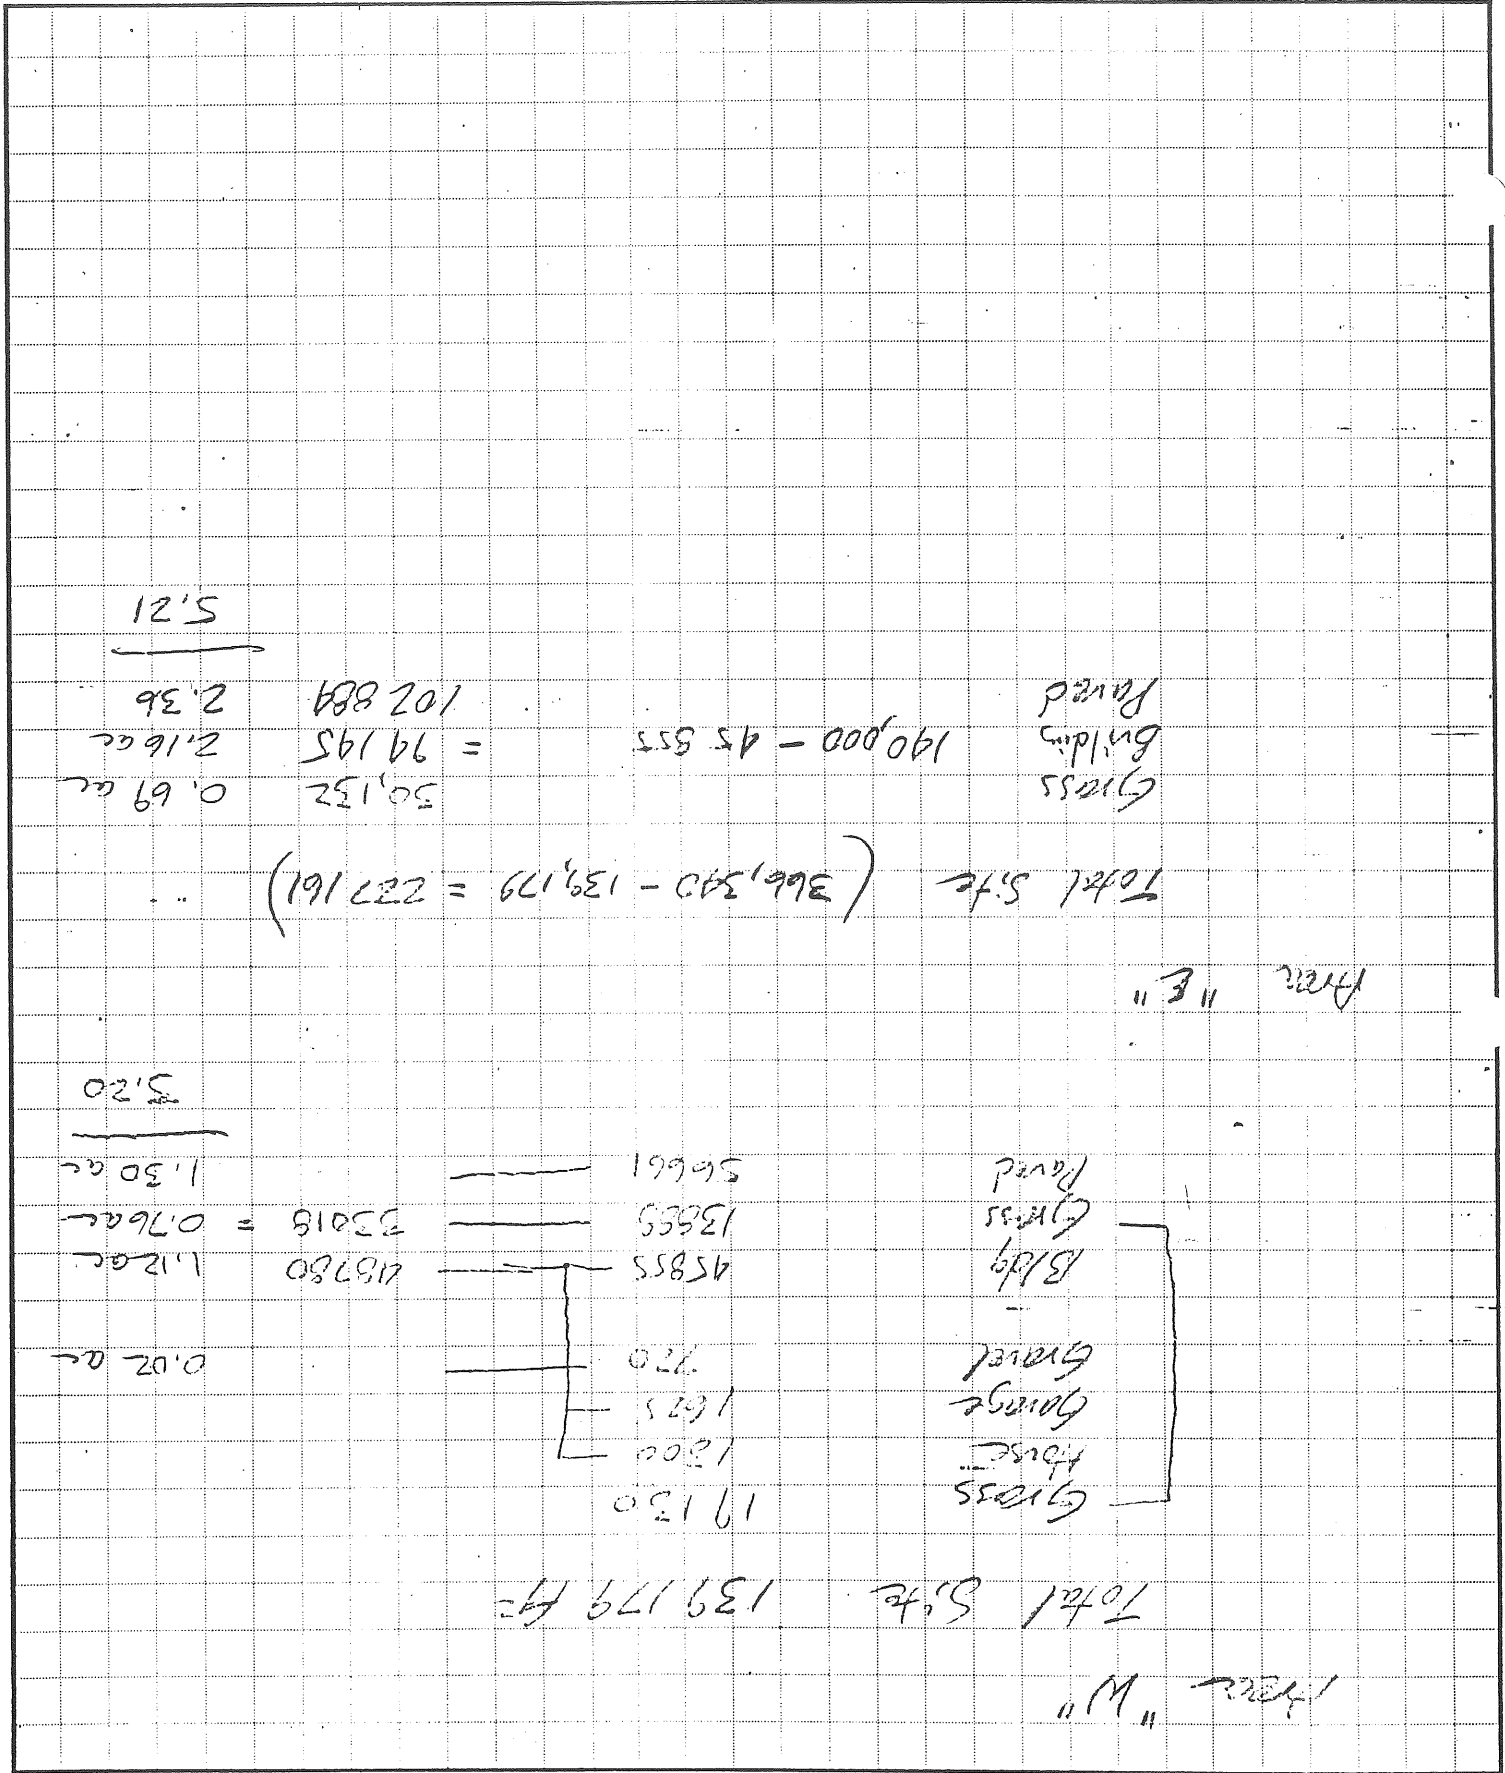 Area "W"
Total Site 139,179 ft²
Grass 19130
House 1300
Garage 1625
Gravel 770 0.02 ac
Bldg 45855 48780 1.12 ac
Grass 13888 33018 = 0.76 ac
Paved 56661 1.30 ac
3.20
Area "E"
Total Site (366,340 - 139,179 = 227161)
Grass 30,132 0.69 ac
Building 140,000 - 45 855 = 94145 2.16 ac
Paved 102 884 2.36
5.21